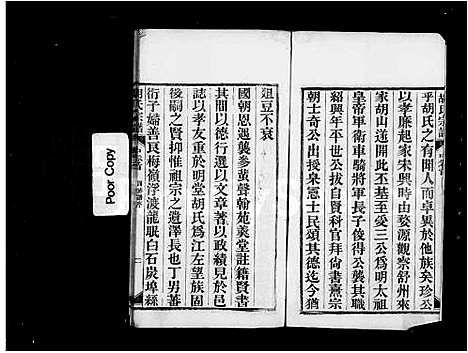 胡氏宗譜
乎胡氏之有開人而卓異於他族矣珍公
以孝廉起家宋興時由婺源觀察舒州來
家胡山遂開此基至愛三公為明太祖
皇帝軍衛車騎將軍長子俊得公襲其職
紹興年平世公自賢科官拜尚書熹宗
朝士奇公出授臬憲士民頌其德迄今猶
俎豆不衰
國朝恩遇襲參黃聲翰苑羙堂註籍賢書
其間以德行選以文章達者以政績見於邑
誌以孝友重於明堂胡氏為江左望族固
後嗣之賢抑惟祖宗之遺澤長也丁男蕃
衍子婦善良梅嶺浮渡龍眠白石炭埠絲
Poor Copy